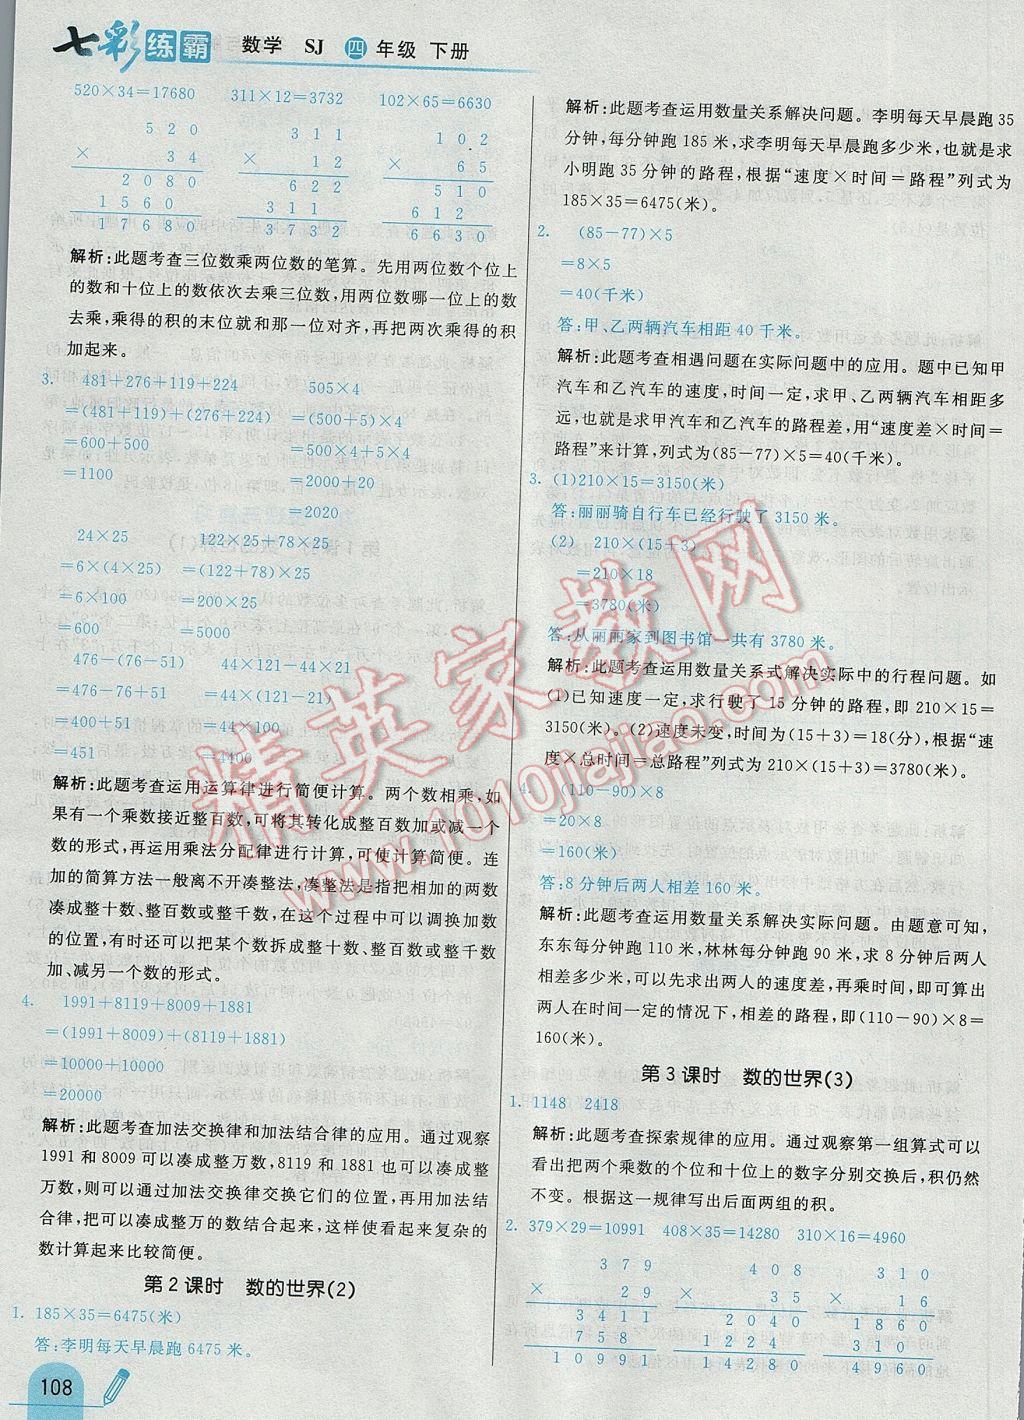 七彩练霸 数学 SJ 四年级 下册
520×34=17680 311×12=3732 102×65=6630
5 2 0
× 3 4
2 0 8 0
1 5 6 0
1 7 6 8 0
3 1 1
× 1 2
6 2 2
3 1 1
3 7 3 2
1 0 2
× 6 5
5 1 0
6 1 2
6 6 3 0
解析:此题考查三位数乘两位数的笔算。先用两位数个位上
的数和十位上的数依次去乘三位数,用两位数哪一位上的数
去乘,乘得的积的末位就和那一位对齐,再把两次乘得的积
加起来。
3. 481+276+119+224 505×4
=(481+119)+(276+224) =(500+5)×4
=600+500 =500×4+5×4
=1100 =2000+20
=2020
24×25 122×25+78×25
=6×(4×25) =(122+78)×25
=6×100 =200×25
=600 =5000
476-(76-51) 44×121-44×21
=476-76+51 =44×(121-21)
=400+51 =44×100
=451 =4400
解析:此题考查运用运算律进行简便计算。两个数相乘,如
果有一个乘数接近整百数,可将其转化成整百数加或减一个
数的形式,再运用乘法分配律进行计算,可使计算简便。连
加的简算方法一般离不开凑整法,凑整法是指把相加的两数
凑成整十数、整百数或整千数,在这个过程中可以调换加数
的位置,有时还可以把某个数拆成整十数、整百数或整千数
加、减另一个数的形式。
4. 1991+8119+8009+1881
=(1991+8009)+(8119+1881)
=10000+10000
=20000
解析:此题考查加法交换律和加法结合律的应用。通过观察
1991 和 8009 可以凑成整万数,8119 和 1881 也可以凑成整
万数,则可以通过加法交换律交换它们的位置,再用加法结
合律,把可以凑成整万的数结合起来,这样使看起来复杂的
数计算起来比较简便。
第 2 课时 数的世界(2)
1. 185×35=6475(米)
答:李明每天早晨跑 6475 米。
108
解析:此题考查运用数量关系解决问题。李明每天早晨跑 35
分钟,每分钟跑 185 米,求李明每天早晨跑多少米,也就是求
小明跑 35 分钟的路程,根据“速度×时间=路程”列式为
185×35=6475(米)。
2. (85-77)×5
=8×5
=40(千米)
答:甲、乙两辆汽车相距 40 千米。
解析:此题考查相遇问题在实际问题中的应用。题中已知甲
汽车和乙汽车的速度,时间一定,求甲、乙两辆汽车相距多
远,也就是求甲汽车和乙汽车的路程差,用“速度差×时间=
路程”来计算,列式为(85-77)×5=40(千米)。
3. (1)210×15=3150(米)
答:丽丽骑自行车已经行驶了 3150 米。
(2) 210×(15+3)
=210×18
=3780(米)
答:从丽丽家到图书馆一共有 3780 米。
解析:此题考查运用数量关系式解决实际中的行程问题。如
(1)已知速度一定,求行驶了 15 分钟的路程,即 210×15=
3150(米)。(2)速度未变,时间为(15+3)=18(分),根据“速
度×总时间=总路程”列式为 210×(15+3)=3780(米)。
4. (110-90)×8
=20×8
=160(米)
答:8 分钟后两人相差 160 米。
解析:此题考查运用数量关系解决实际问题。由题意可知,
东东每分钟跑 110 米,林林每分钟跑 90 米,求 8 分钟后两人
相差多少米,可以先求出两人的速度差,再乘时间,即可算出
两人在时间一定的情况下,相差的路程,即(110-90)×8=
160(米)。
第 3 课时 数的世界(3)
1. 1148 2418
解析:此题考查探索规律的应用。通过观察第一组算式可以
看出把两个乘数的个位和十位上的数字分别交换后,积仍然
不变。根据这一规律写出后面两组的积。
2. 379×29=10991 408×35=14280 310×16=4960
3 7 9
× 2 9
3 4 1 1
7 5 8
1 0 9 9 1
4 0 8
× 3 5
2 0 4 0
1 2 2 4
1 4 2 8 0
3 1 0
× 1 6
1 8 6 0
3 1 0
4 9 6 0
精英家教网
www.1010jiajiao.com